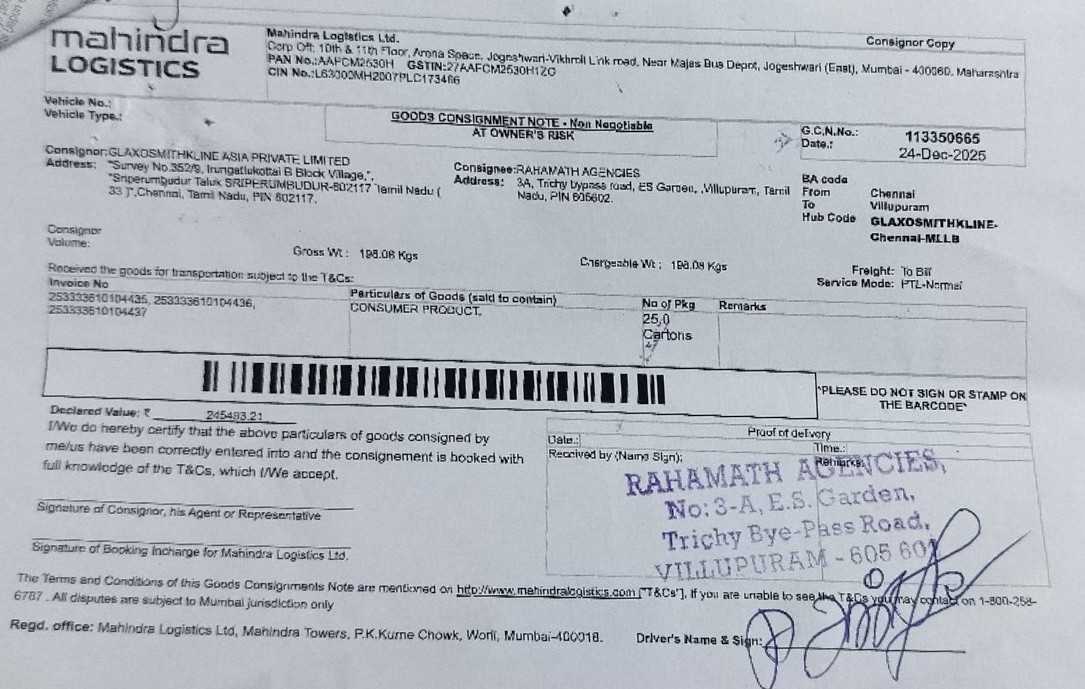 mahindra
LOGISTICS
Mahindra Logistics Ltd.
Corp Off: 10th & 11th Floor, Arena Space, Jogeshwari-Vikhroli Link road, Near Majas Bus Depot, Jogeshwari (East), Mumbai - 400060, Maharashtra
PAN No.:AAFCM2530H GSTIN:27AAFCM2530H1ZO
CIN No.:L63000MH2007PLC173466
Consignor Copy
Vehicle No.:
Vehicle Type.:
GOODS CONSIGNMENT NOTE - Non Negotiable
AT OWNER'S RISK
G.C.N.No.: 113350665
Date.: 24-Dec-2025
Consignor:GLAXOSMITHKLINE ASIA PRIVATE LIMITED
Address: "Survey No.352/9, Irungattukottai B Block Village,",
"Sriperumbudur Taluk SRIPERUMBUDUR-602117 Tamil Nadu (
33 )",Chennai, Tamil Nadu, PIN 602117.
Consignee:RAHAMATH AGENCIES
Address: 3A, Trichy bypass road, ES Garden, ,Villupuram, Tamil
Nadu, PIN 605602.
BA code
From Chennai
To Villupuram
Hub Code GLAXOSMITHKLINE-
Chennai-MLLB
Consignor
Volume:
Gross Wt : 198.08 Kgs
Chargeable Wt : 198.08 Kgs
Freight: To Bill
Service Mode: PTL-Normal
Received the goods for transportation subject to the T&Cs:
Invoice No
253333610104435, 253333610104436,
253333610104437
Particulars of Goods (said to contain)
CONSUMER PRODUCT.
No of Pkg
25.0
Cartons
Remarks
"PLEASE DO NOT SIGN OR STAMP ON
THE BARCODE"
Declared Value: ₹ 245483.21
I/We do hereby certify that the above particulars of goods consigned by
me/us have been correctly entered into and the consignement is booked with
full knowledge of the T&Cs, which I/We accept.
Proof of delivery
Date.: Time.:
Received by (Name Sign): Remarks:
RAHAMATH AGENCIES,
No: 3-A, E.S. Garden,
Trichy Bye-Pass Road,
VILLUPURAM - 605 601
Signature of Consignor, his Agent or Representative
Signature of Booking Incharge for Mahindra Logistics Ltd.
The Terms and Conditions of this Goods Consignments Note are mentioned on http://www.mahindralogistics.com ["T&Cs"]. If you are unable to see the T&Cs you may contact on 1-800-258-
6787 . All disputes are subject to Mumbai jurisdiction only
Regd. office: Mahindra Logistics Ltd, Mahindra Towers, P.K.Kurne Chowk, Worli, Mumbai-400018.
Driver's Name & Sign: